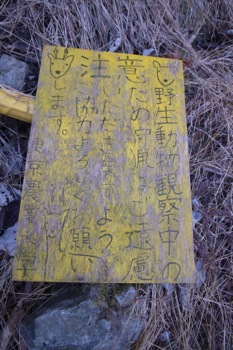 野生動物観察中の
ため狩猟はご遠慮
いただきますよう
ご協力よろしくお願い
します。
東京農業大学
注意